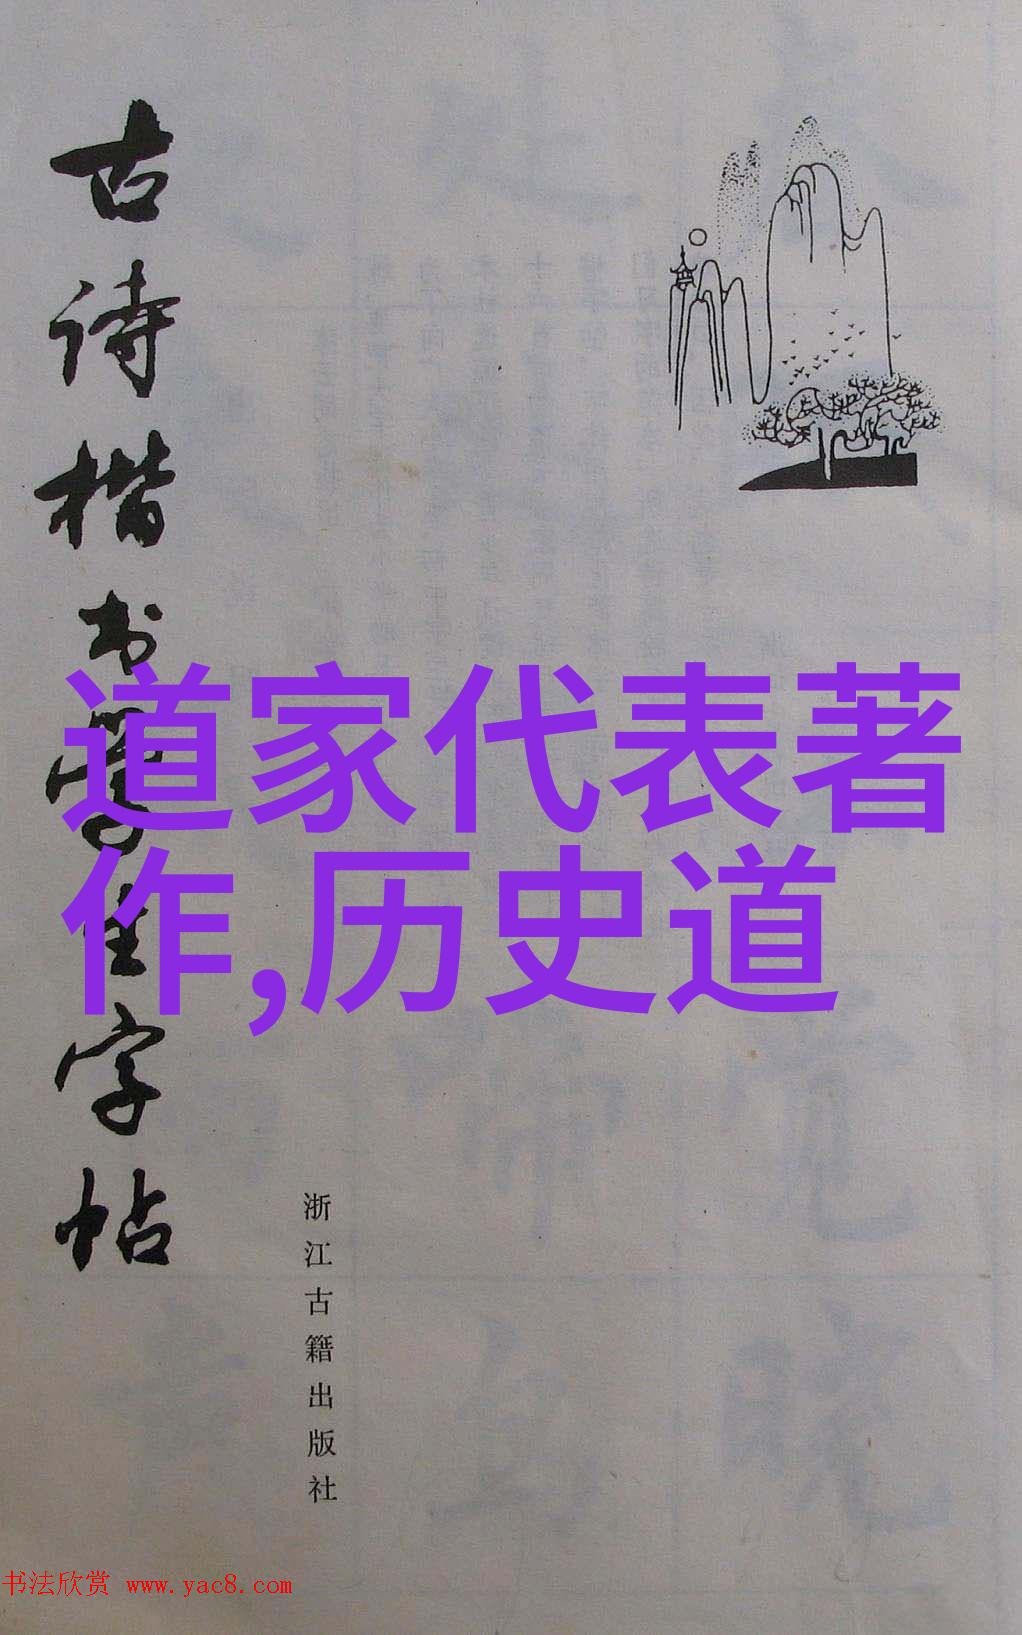 古诗楷书学生字帖
道家代表著
作,历史道
浙江古籍出版社
书法欣赏 www.yac8.com